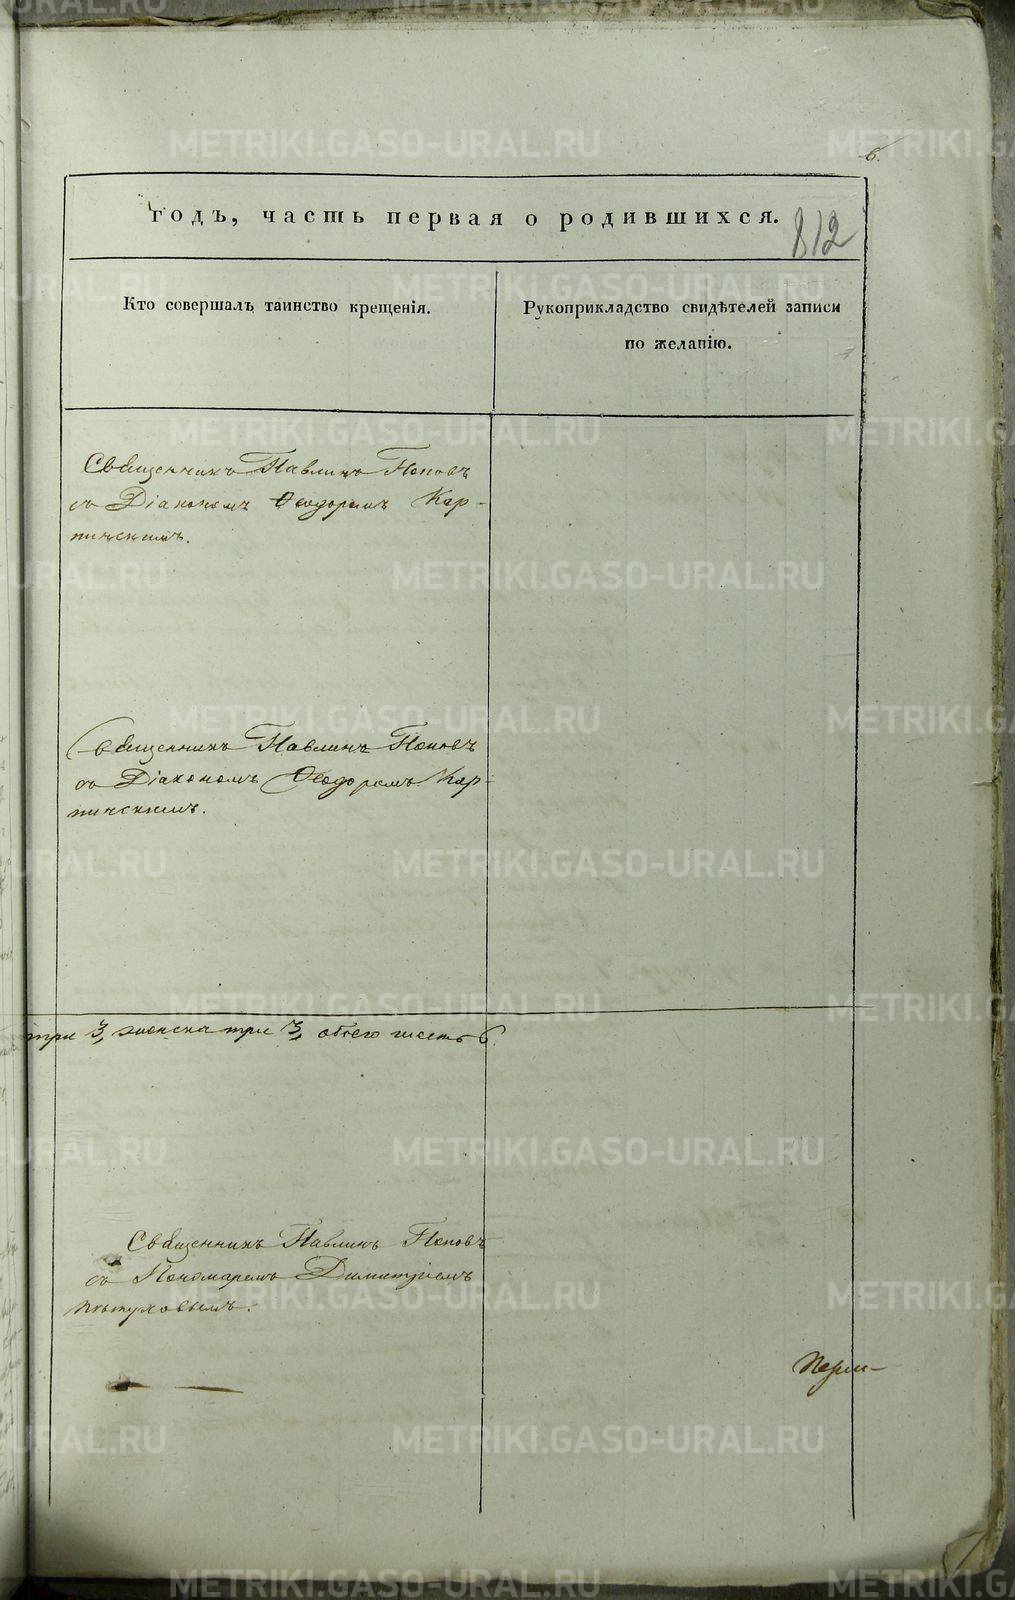 6.
годъ, часть первая о родившихся.
812
Кто совершалъ таинство крещенія.
Рукоприкладство свидѣтелей записи
по желанію.
Священникъ Павлинъ Поповъ
съ Діакономъ Ѳеодоромъ Кар-
пинскимъ.
Священникъ Павлинъ Поповъ
съ Діакономъ Ѳеодоромъ Кар-
пинскимъ.
три 3, женска три 3, обоего шесть 6.
Священникъ Павлинъ Поповъ
съ Пономаремъ Димитріемъ
Пѣтуховымъ.
Перм-
METRIKI.GASO-URAL.RU